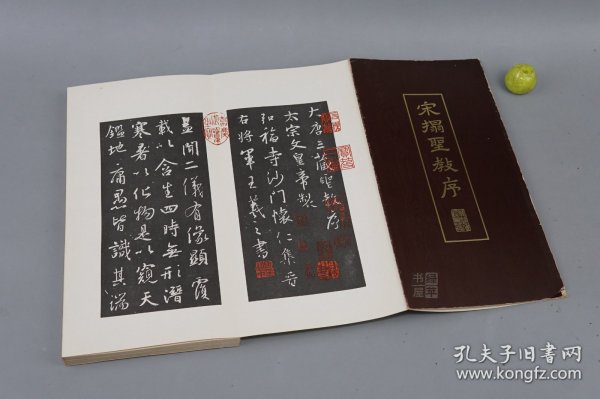 宋搨聖教序
大唐三藏聖教序
太宗文皇帝製
弘福寺沙門懷仁集晉
右將軍王羲之書
蓋聞二儀有像顯覆
載以含生四時無形潛
寒暑以化物是以窺天
鑑地庸愚皆識其端
孔夫子旧书网
www.kongfz.com